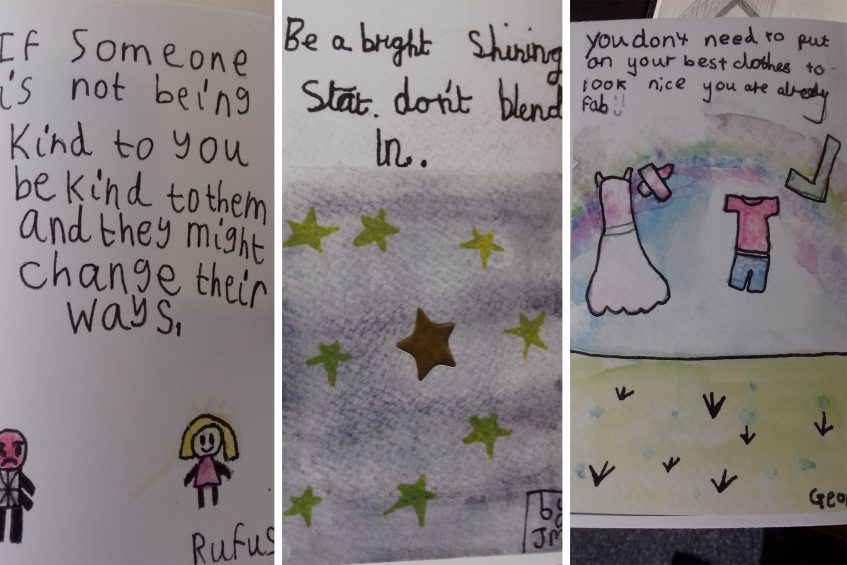 If Someone
is not being
Kind to you
be kind to them
and they might
change their
ways.
Rufus
Be a bright shining
Star. don't blend
In.
by
JM
You don't need to put
on your best clothes to
look nice you are already
fab!!
Geor